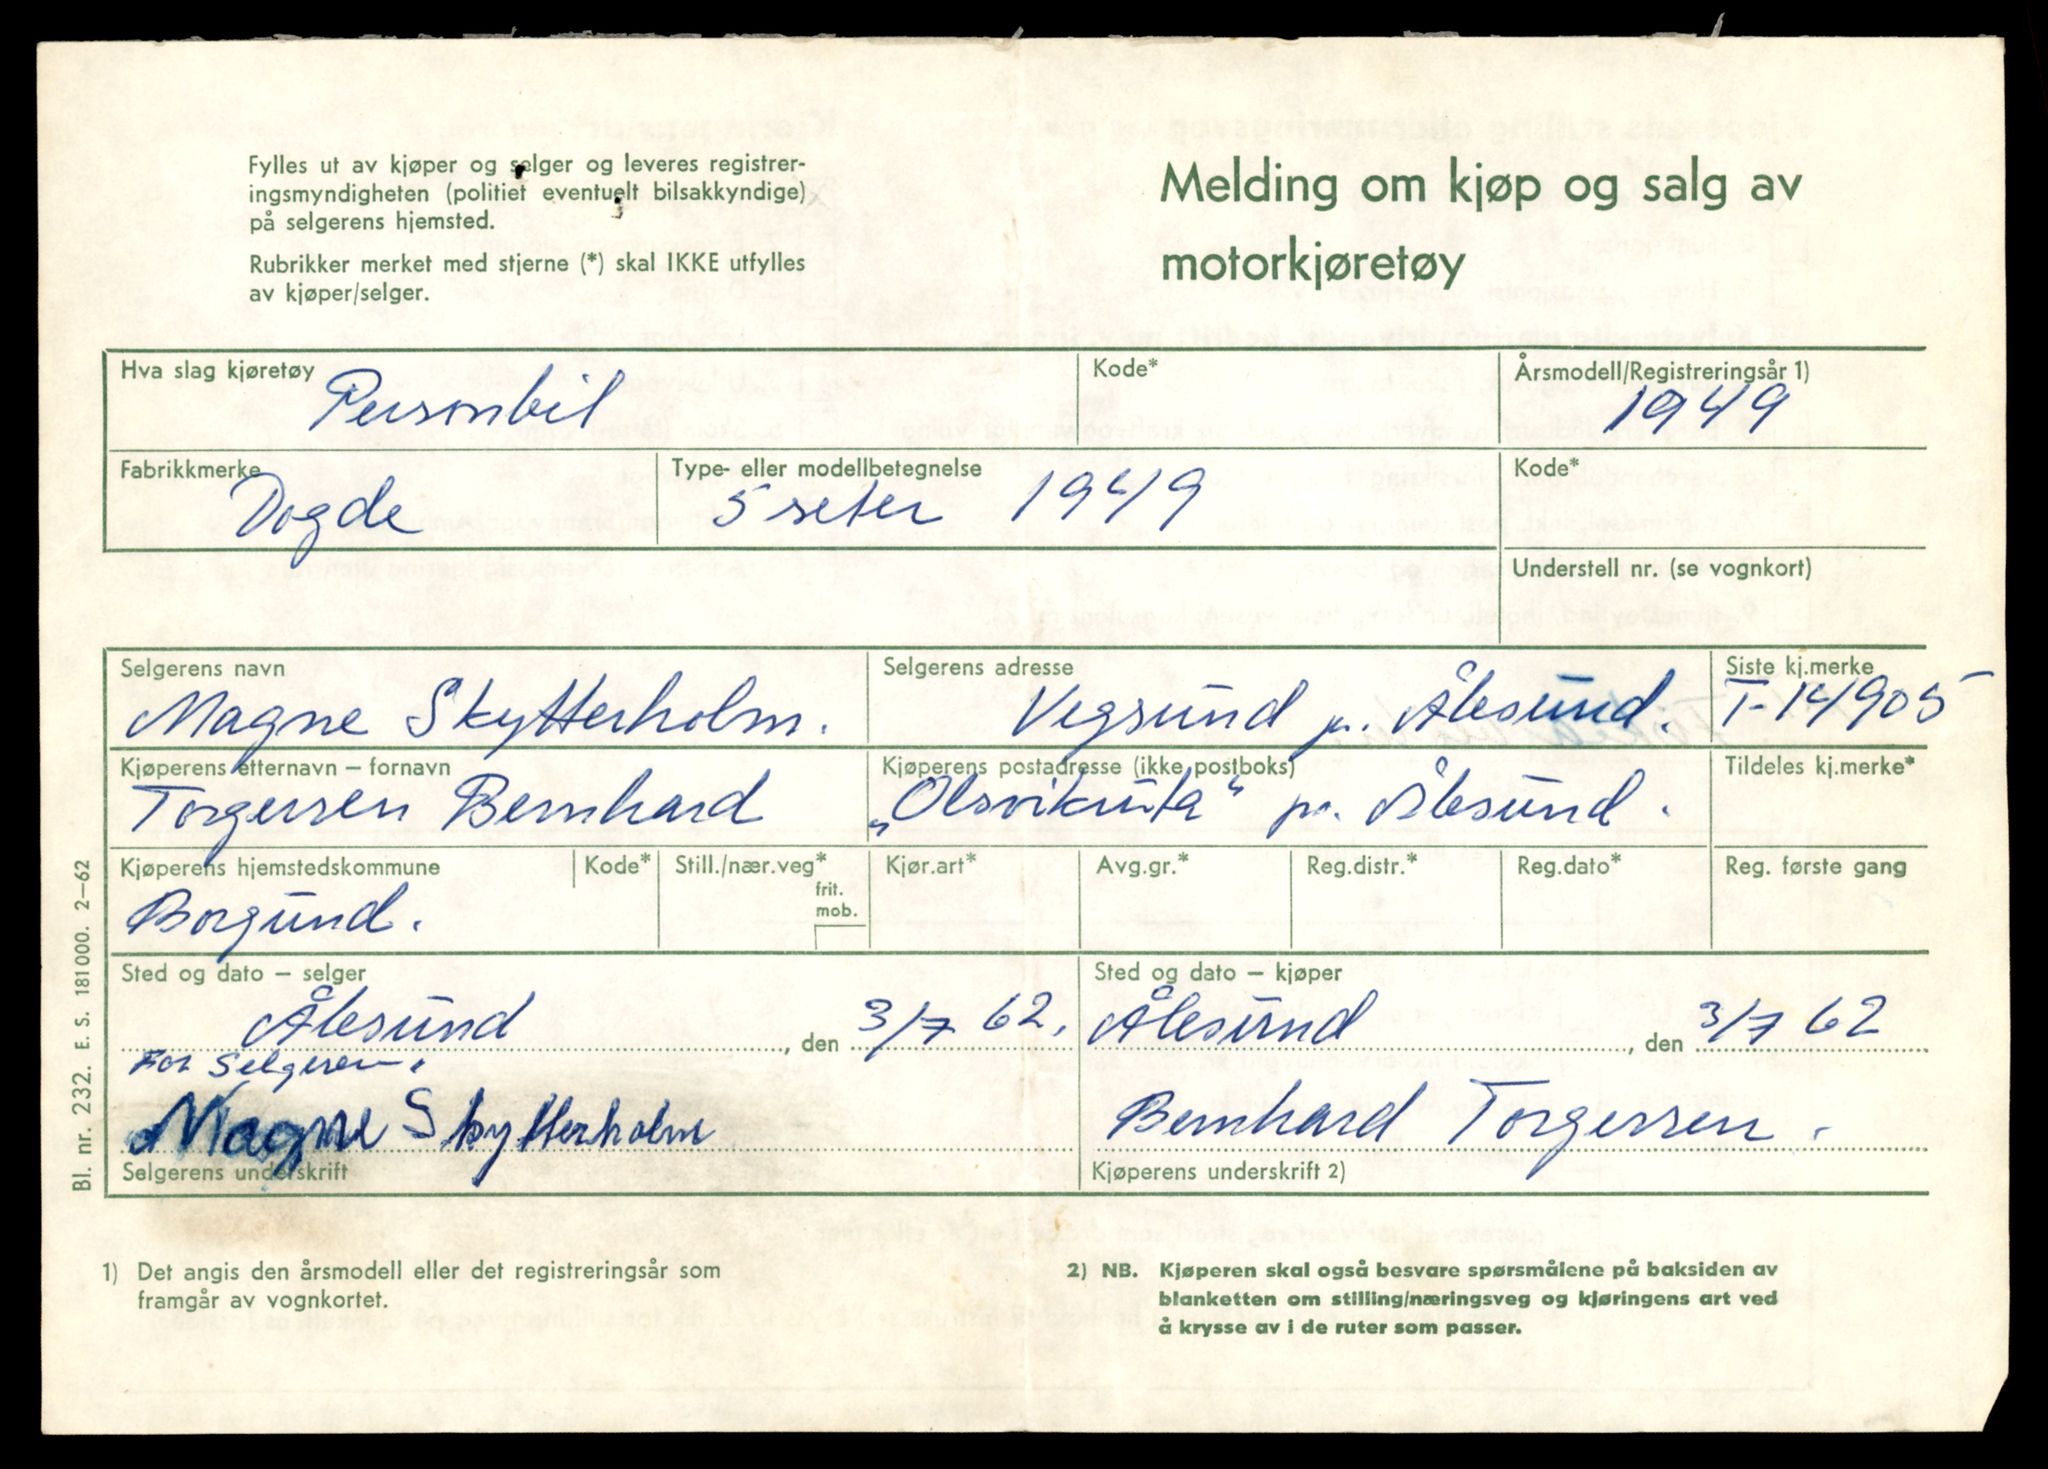 Fylles ut av kjøper og selger og leveres registrer-
ingsmyndigheten (politiet eventuelt bilsakkyndige)
på selgerens hjemsted.
Rubrikker merket med stjerne (*) skal IKKE utfylles
av kjøper/selger.
Melding om kjøp og salg av
motorkjøretøy
Hva slag kjøretøy
Personbil
Kode*
Årsmodell/Registreringsår 1)
1949
Fabrikkmerke
Dogde
Type- eller modellbetegnelse
5 seter 1949
Kode*
Understell nr. (se vognkort)
Selgerens navn
Magne Skytterholm.
Selgerens adresse
Vegsund pr. Ålesund.
Siste kj.merke
T-14905
Kjøperens etternavn – fornavn
Torgersen Bernhard
Kjøperens postadresse (ikke postboks)
„Olsvikruta" pr. Ålesund.
Tildeles kj.merke*
Kjøperens hjemstedskommune
Borgund.
Kode*
Still./nær.veg*
frit.
mob.
Kjør.art*
Avg.gr.*
Reg.distr.*
Reg.dato*
Reg. første gang
Sted og dato – selger
Ålesund, den 3/7 62.
For Selgeren.
Magne Skytterholm
Selgerens underskrift
Sted og dato – kjøper
Ålesund, den 3/7 62
Bernhard Torgersen.
Kjøperens underskrift 2)
Bl. nr. 232. E. S. 181000. 2–62
1) Det angis den årsmodell eller det registreringsår som
framgår av vognkortet.
2) NB. Kjøperen skal også besvare spørsmålene på baksiden av
blanketten om stilling/næringsveg og kjøringens art ved
å krysse av i de ruter som passer.